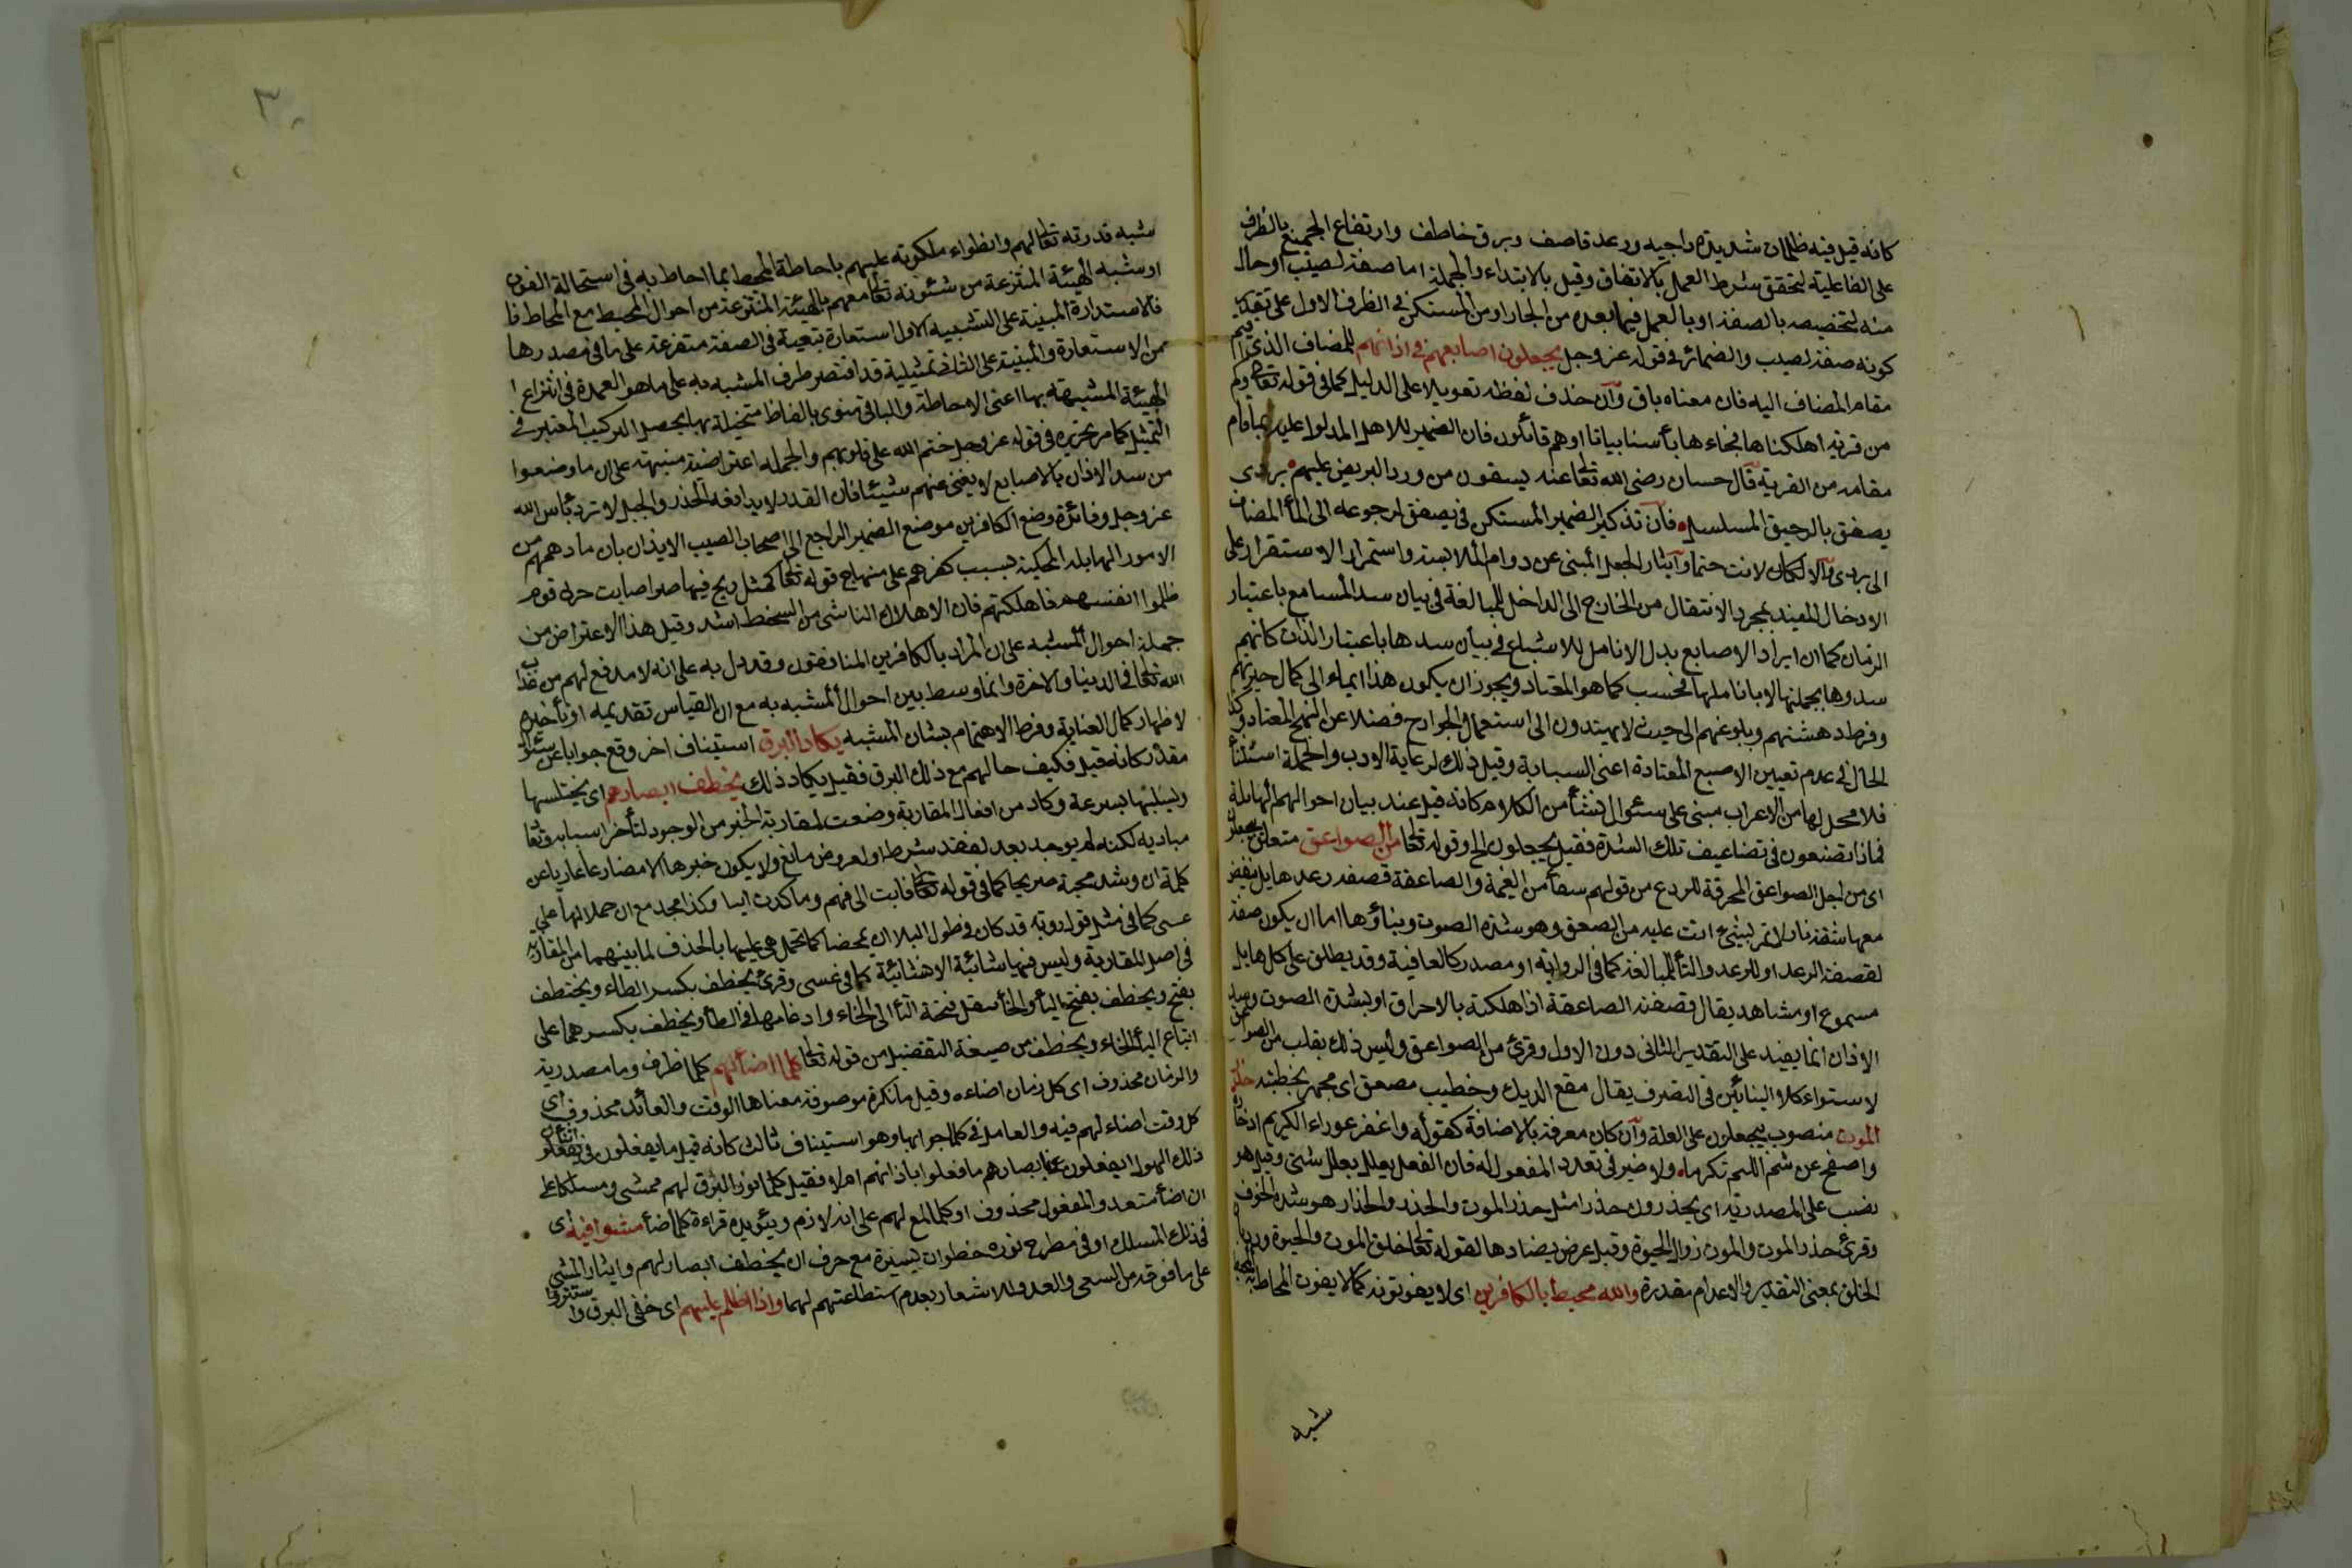 كانه قيل فيه ظلمات شديدة داجيه ورعد قاصف وبرق خاطف وارتفاع الجميع بالظرف
على الفاعلية لتحقق شرط العمل بالاتفاق وقيل بالابتداء والجملة اما صفة لصيب او حال
منه لتخصيصه بالصفة او بالعمل فيما بعده من الجار او من المستكن في الظرف الاول على تقدير
كونه صفة لصيب والضمائر في قوله عز وجل يجعلون اصابعهم في اذانهم للمضاف الذي اقيم
مقامه المضاف اليه فان معناه باق وان حذف لفظه تعويلا على الدليل كما في قوله تعالى وكم
من قرية اهلكناها فجاءها بأسنا بياتا او هم قائلون فان الضمير للاهل المدلول عليه بما قام
مقامه من القرية قال حسان رضى الله تعالى عنه يسقون من ورد البريص عليهم بردى
يصفق بالرحيق السلسل فان تذكير الضمير المستكن في يصفق لرجوعه الى الماء المضاف
الى بردى والا لكان لانث حتما وايثار الجعل المنبئ عن دوام الملابسة واستمرار الاستقرار على
الادخال المفيد بمجرد الانتقال من الخارج الى الداخل للمبالغة في بيان سد المسامع باعتبار
الزمان كما ان ايراد الاصابع بدل الانامل للاشباع في بيان سدها باعتبار الذات كانهم
سدوها بجملتها لا باناملها فحسب كما هو المعتاد ويجوز ان يكون هذا ايماء الى كمال حيرتهم
وفرط دهشتهم وبلوغهم الى حيث لا يهتدون الى استعمال الجوارح فضلا عن النهج المعتاد وكذا
الحال في عدم تعيين الاصبع المعتادة اعنى السبابة وقيل ذلك لرعاية الادب والجملة استئناف
فلا محل لها من الاعراب مبنى على سئوال نشأ من الكلام كانه قيل عند بيان احوالهم الهائلة
فماذا تصنعون في تضاعيف تلك الشدة فقيل يجعلون الخ وقوله تعالى من الصواعق متعلق بيجعلون
اى من اجل الصواعق المحرقة للردع من قولهم سقاه من الغيمة والصاعقة قصفه رعد هايل تنقض
معها شقة نار لا تمر لشيئ اتت عليه من الصعق وهو شدة الصوت وبناؤها اما ان يكون صفة
لقصفة الرعد او للرعد والتأ للمبالغة كما في الرواية او مصدر كالعافية وقد يطلق على كل هايل
مسموع او مشاهد يقال صعقته الصاعقة اذا اهلكته بالاحراق او بشدة الصوت وسد
الاذان انما يفيد على التقدير الثانى دون الاول وقرئ من الصواقع وليس ذلك بقلب من الصواعق
لاستواء كلا البنائين في التصرف يقال صقع الديك وخطيب مصعق اى مجهر بخطبته حذر
الموت منصوب بيجعلون على العلة وان كان معرفة بالاضافة كقوله واغفر عوراء الكريم ادخاره
واصفح عن شتم اللئيم تكرما ولا ضير في تعدد المفعول له فان الفعل يعلل بعلل شتى وقيل هو
نصب على المصدرية اى يحذرون حذرا مثل حذر الموت والحذر والحذار هو شدة الخوف
وقرئ حذار الموت والموت زوال الحيوة وقيل عرض يضادها لقوله تعالى خلق الموت والحيوة ورد بان
الخلق بمعنى التقدير والاعدام مقدرة والله محيط بالكافرين اى لا يفوتونه كما لا يفوت المحاط به المحيط
شبه
٣٠
شبه قدرته تعالى لهم وانطواء ملكوته عليهم باحاطة المحيط بما احاط به في استحالة الفوت
او شبه الهيئة المنتزعة من شئونه تعالى معهم بالهيئة المنتزعة من احوال المحيط مع المحاط فا
فالاستدارة المبنية على التشبيه الاول استعارة تبعية في الصفة متفرعة على ما في مصدرها
من الاستعارة والمبنية على الثانى تمثيلية قد اقتصر طرف المشبه به على ما هو العمدة في انتزاع ا
الهيئة المشبهة بها اعنى الاحاطة والباقي منوى بالفاظ متخيلة بها يحصل التركيب المعتبر في
التمثيل كما مر تحريره في قوله عز وجل ختم الله على قلوبهم والجملة اعتراضية منبهة على ان ما وضعوا
من سد الاذان بالاصابع لا يغنى عنهم شيئا فان القدر لا يدافعه الحذر والحيل لا ترد بأس الله
عز وجل وفائدة وضع الكافرين موضع الضمير الراجع الى اصحاب الصيب الايذان بان ما دهمهم من
الامور الهائلة المحكية بسبب كفرهم على منهاج قوله تعالى كمثل ريح فيها صر اصابت حرث قوم
ظلموا انفسهم فاهلكته فان الاهلاك الناشى من السخط اشد وقيل هذا الاعتراض من
جملة احوال المشبه على ان المراد بالكافرين المنافقون وقد دل به على انه لا مدفع لهم من عذاب
الله تعالى في الدنيا والاخرة وانما وسط بين احوال المشبه به مع ان القياس تقديمه او تأخيره
لاظهار كمال العناية وفرط الاهتمام بشان المشبه يكاد البرق استيناف اخر وقع جوابا عن سئوال
مقدر كانه قيل فكيف حالهم مع ذلك البرق فقيل يكاد ذلك يخطف ابصارهم اى يختلسها
ويستلبها بسرعة وكاد من افعال المقاربة وضعت لمقاربة الخبر من الوجود لتأخر اسبابه وتعا
مباديه لكنه لم يوجد بعد لفقد شرط او لعروض مانع ولا يكون خبرها الا مضارعا عاريا عن
كلمة ان وشذ مجيئه صريحا كما في قوله تعالى فابت الى فهم وما كدت ايبا وكذا مجيئه مع ان حملا لها على
عسى كما في مثل قول رؤبة قد كان في طول البلا ان يمحضا كما تحمل هى عليها بالحذف لما بينهما من المقارنة
في اصل المقاربة وليس فيها شائبة الانشائية كما في عسى وقرئ يخطف بكسر الطاء ويختطف
بفتح ويخطف بفتح اليأ والخأ بنقل فتحة التأ الى الخاء وادغامها في الطأ ويخطف بكسرهما على
اتباع اليأ الخاء ويخطف من صيغة التفعيل من قوله تعالى كلما اضأ لهم كلما ظرف وما مصدرية
والزمان محذوف اى كل زمان اضاءه وقيل ما نكرة موصوفة معناها الوقت والعائد محذوف اى
كل وقت اضاء لهم فيه والعامل في كلما جوابها وهو استيناف ثالث كانه قيل ما يفعلون في اثناء
ذلك الهول ايفعلون بابصارهم ما فعلوا باذانهم ام لا فقيل كلما نور البرق لهم ممشى ومسلكا على
ان اضأ متعد والمفعول محذوف او كلما لمع لهم على انه لازم ويئويده قراءة كلما ضأ مشوا فيه اى
في ذلك المسلك او في مطرح نوره خطوات يسيرة مع خوف ان يخطف ابصارهم وايثار المشى
على ما فوقه من السعى والعدو للاشعار بعدم استطاعتهم لهما واذا اظلم عليهم اى خفى البرق واستتروا